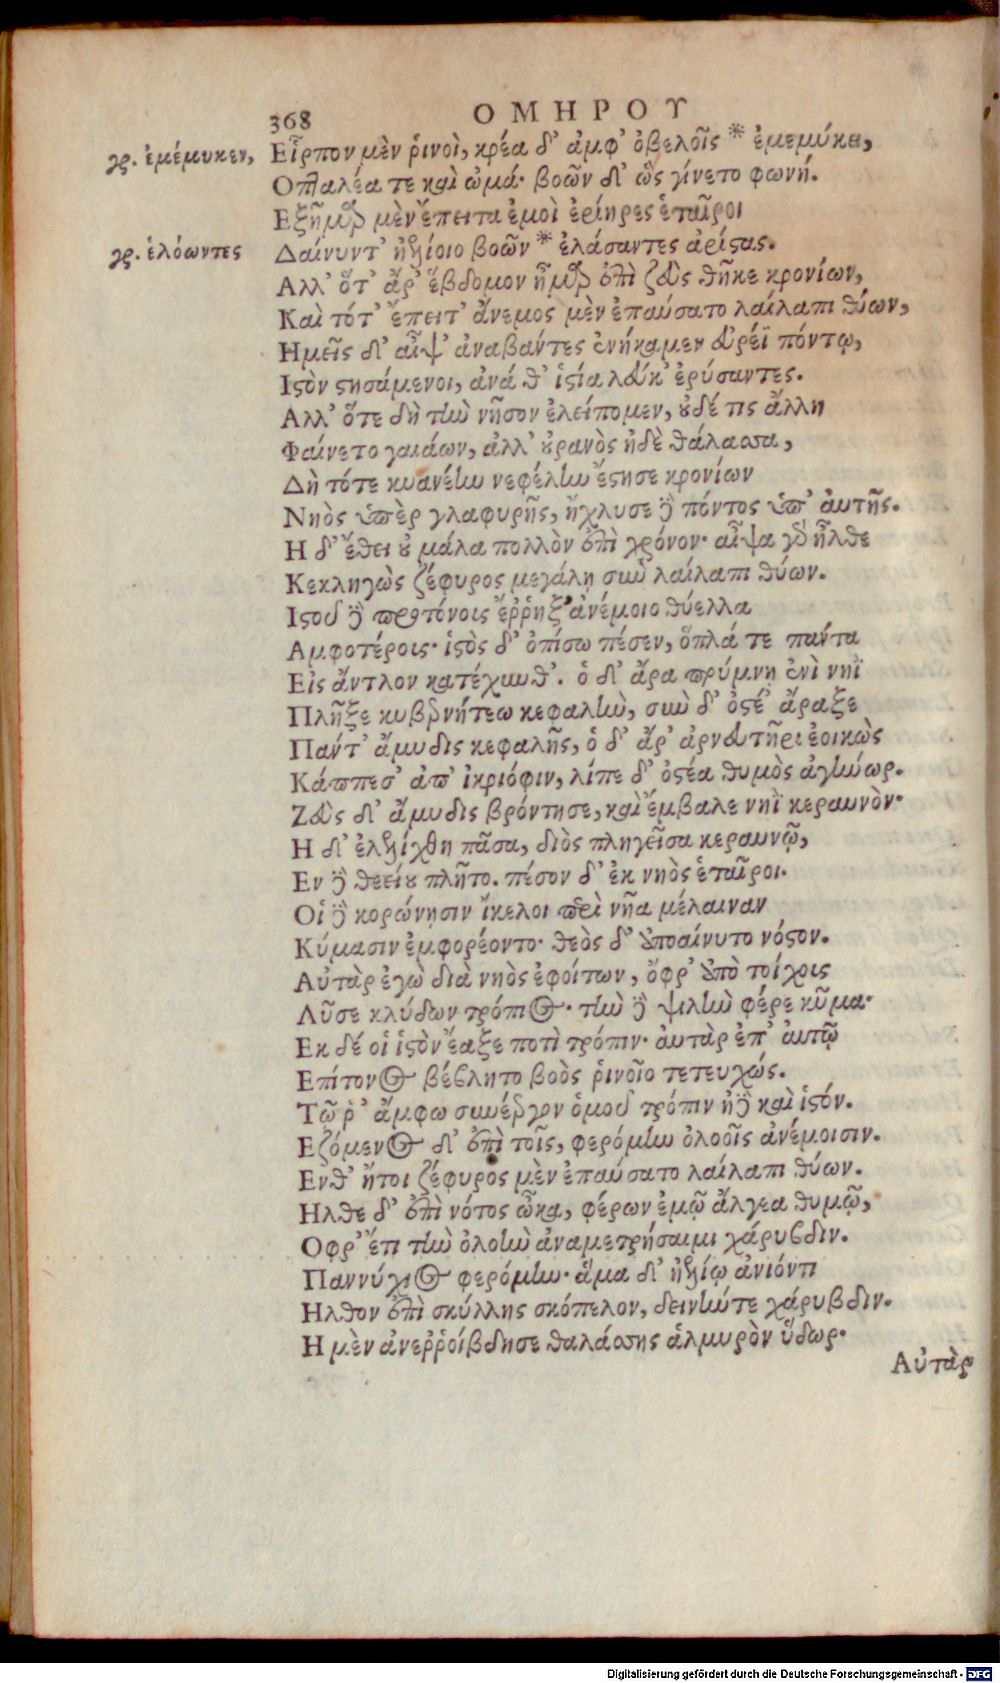 368
ΟΜΗΡΟΥ
γρ. ἐμέμυκεν,
Εἷρπον μὲν ῥινοὶ, κρέα δ' ἀμφ' ὀβελοῖς * ἐμεμύκει,
Οπταλέα τε καὶ ὠμά· βοῶν δ' ὣς γίνετο φωνή.
Εξῆμαρ μὲν ἔπειτα ἐμοὶ ἐρίηρες ἑταῖροι
γρ. ἑλόωντες
Δαίνυντ' ἠελίοιο βοῶν * ἐλάσαντες ἀρίστας.
Αλλ' ὅτ' ἄρ' ἕβδομον ἦμαρ ἐπὶ ζεὺς θῆκε κρονίων,
Καὶ τότ' ἔπειτ' ἄνεμος μὲν ἐπαύσατο λαίλαπι θύων,
Ημεῖς δ' αἶψ' ἀναβάντες ἐνήκαμεν εὐρέϊ πόντῳ,
Ιστὸν στησάμενοι, ἀνά θ' ἱστία λεύκ' ἐρύσαντες.
Αλλ' ὅτε δὴ τὴν νῆσον ἐλείπομεν, οὐδέ τις ἄλλη
Φαίνετο γαιάων, ἀλλ' οὐρανὸς ἠδὲ θάλασσα,
Δὴ τότε κυανέην νεφέλην ἔστησε κρονίων
Νηὸς ὑπὲρ γλαφυρῆς, ἤχλυσε δὲ πόντος ὑπ' ἀυτῆς.
Η δ' ἔθει οὐ μάλα πολλὸν ἐπὶ χρόνον· αἶψα γὰρ ἦλθε
Κεκληγὼς ζέφυρος μεγάλη σὺν λαίλαπι θύων.
Ιστοῦ δὲ προτόνοις ἔῤῥηξ' ἀνέμοιο θύελλα
Αμφοτέροις· ἱστὸς δ' ὀπίσω πέσεν, ὅπλά τε πάντα
Εἰς ἄντλον κατέχυνθ'. ὁ δ' ἄρα πρύμνῃ ἐνὶ νηῒ
Πλῆξε κυβερνήτεω κεφαλὴν, σὺν δ' ὀστέ' ἄραξε
Πάντ' ἄμυδις κεφαλῆς, ὁ δ' ἄρ' ἀρνευτῆρι ἐοικὼς
Κάππεσ' ἀπ' ἰκριόφιν, λίπε δ' ὀστέα θυμὸς ἀγήνωρ.
Ζεὺς δ' ἄμυδις βρόντησε, καὶ ἔμβαλε νηῒ κεραυνὸν·
Η δ' ἐλελίχθη πᾶσα, διὸς πληγεῖσα κεραυνῷ,
Εν δὲ θεείου πλῆτο. πέσον δ' ἐκ νηὸς ἑταῖροι.
Οἱ δὲ κορώνησιν ἴκελοι περὶ νῆα μέλαιναν
Κύμασιν ἐμφορέοντο· θεὸς δ' ὑποαίνυτο νόστον.
Αὐτὰρ ἐγὼ διὰ νηὸς ἐφοίτων, ὄφρ' ὑπὸ τοίχοις
Λῦσε κλύδων τρόπιος· τὴν δὲ ψιλὴν φέρε κῦμα·
Εκ δέ οἱ ἱστὸν ἔαξε ποτὶ τρόπιν· ἀυτὰρ ἐπ' ἀυτῷ
Επίτονος βέβλητο βοὸς ῥινοῖο τετευχώς.
Τῷ ῥ' ἄμφω συνέεργον ὁμοῦ τρόπιν ἠδὲ καὶ ἱστόν.
Εζόμενος δ' ἐπὶ τοῖς, φερόμην ὀλοοῖς ἀνέμοισιν.
Ενθ' ἤτοι ζέφυρος μὲν ἐπαύσατο λαίλαπι θύων.
Ηλθε δ' ἐπὶ νότος ὦκα, φέρων ἐμῷ ἄλγεα θυμῷ,
Οφρ' ἔτι τὴν ὀλοὴν ἀναμετρήσαιμι χάρυβδιν.
Παννύχιος φερόμην· ἅμα δ' ἠελίῳ ἀνιόντι
Ηλθον ἐπὶ σκύλλης σκόπελον, δεινήν τε χάρυβδιν.
Η μὲν ἀνεῤῥοίβδησε θαλάσσης ἁλμυρὸν ὕδωρ·
Αὐτὰρ
Digitalisierung gefördert durch die Deutsche Forschungsgemeinschaft - DFG